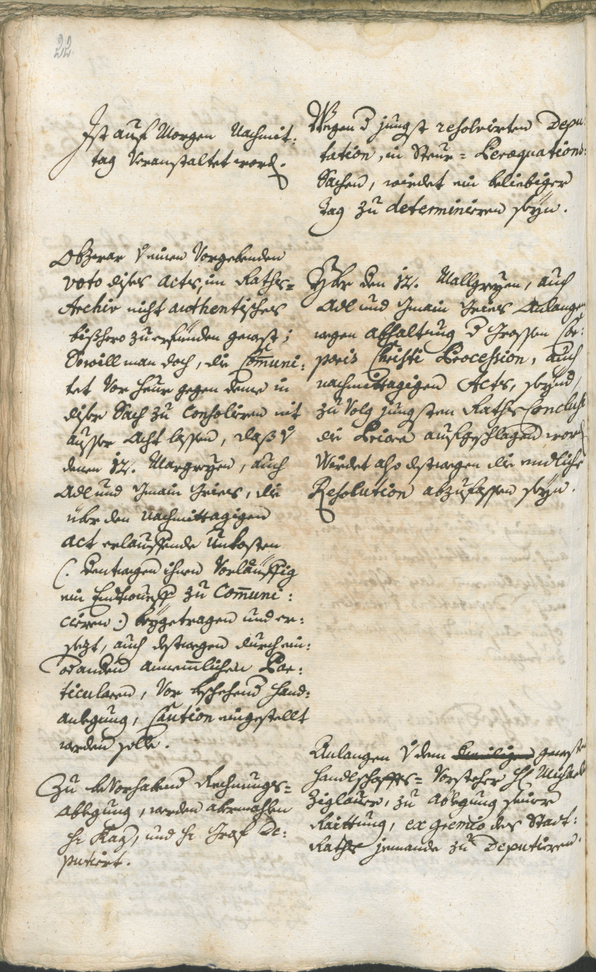 22.
Ist auf Morgen Nachmit:
tag Veranstaltet word.
Obzwar in einen Vorgebenden
voto dises acts, im Raths=
Archiv nicht authentisches
bißhero zu erfinden gewest;
So will man doch, die Communi:
tet Vor heur gegen deme in
diser Sach zu Consoliren mit
ausser acht lassen, daß
denen 12. Margreyen, auch
Adl und Gmain
über den Nachmittagigen
act erlauffende Unkosten
(: Dentwegen ihnen Vorläuffig
ein zu Communi:
ciren :) beygetragen und er=
sezt, auch destwegen durch ein:
annemmlichen Par=
ticularen, Vor beschehend Hand=
anlegung, Caution eingestellt
werden solle.
Zu bevorhabend Rechnungs=
ablegung, werden abermahlen
H: Kaz, und H: Graf De:
putiert.
Wegen jüngst resolvirten Depu
tation, in Steur=Peraequations:
Sachen, würdet ein beliebiger
tag zu determiniren seyn.
Yber den 12. Mallgreyen, auch
Adl und Gmain Anlangen
wegen abhaltung Grossen Cor:
poris Christi Procession, auch
nachmittagigen Acts, seynd,
zu Volg jüngsten Raths Conclusi
die aufgeschlagen word
Würdet also destwegen die endliche
Resolution abzufassen seyn.
Anlangen dem gewest
Handlschaffts=Vorsteher H: Michael
Ziglauer, zu Ablegung seiner
Raittung, ex gremio des Stadt:
Raths jemande zu Deputieren.